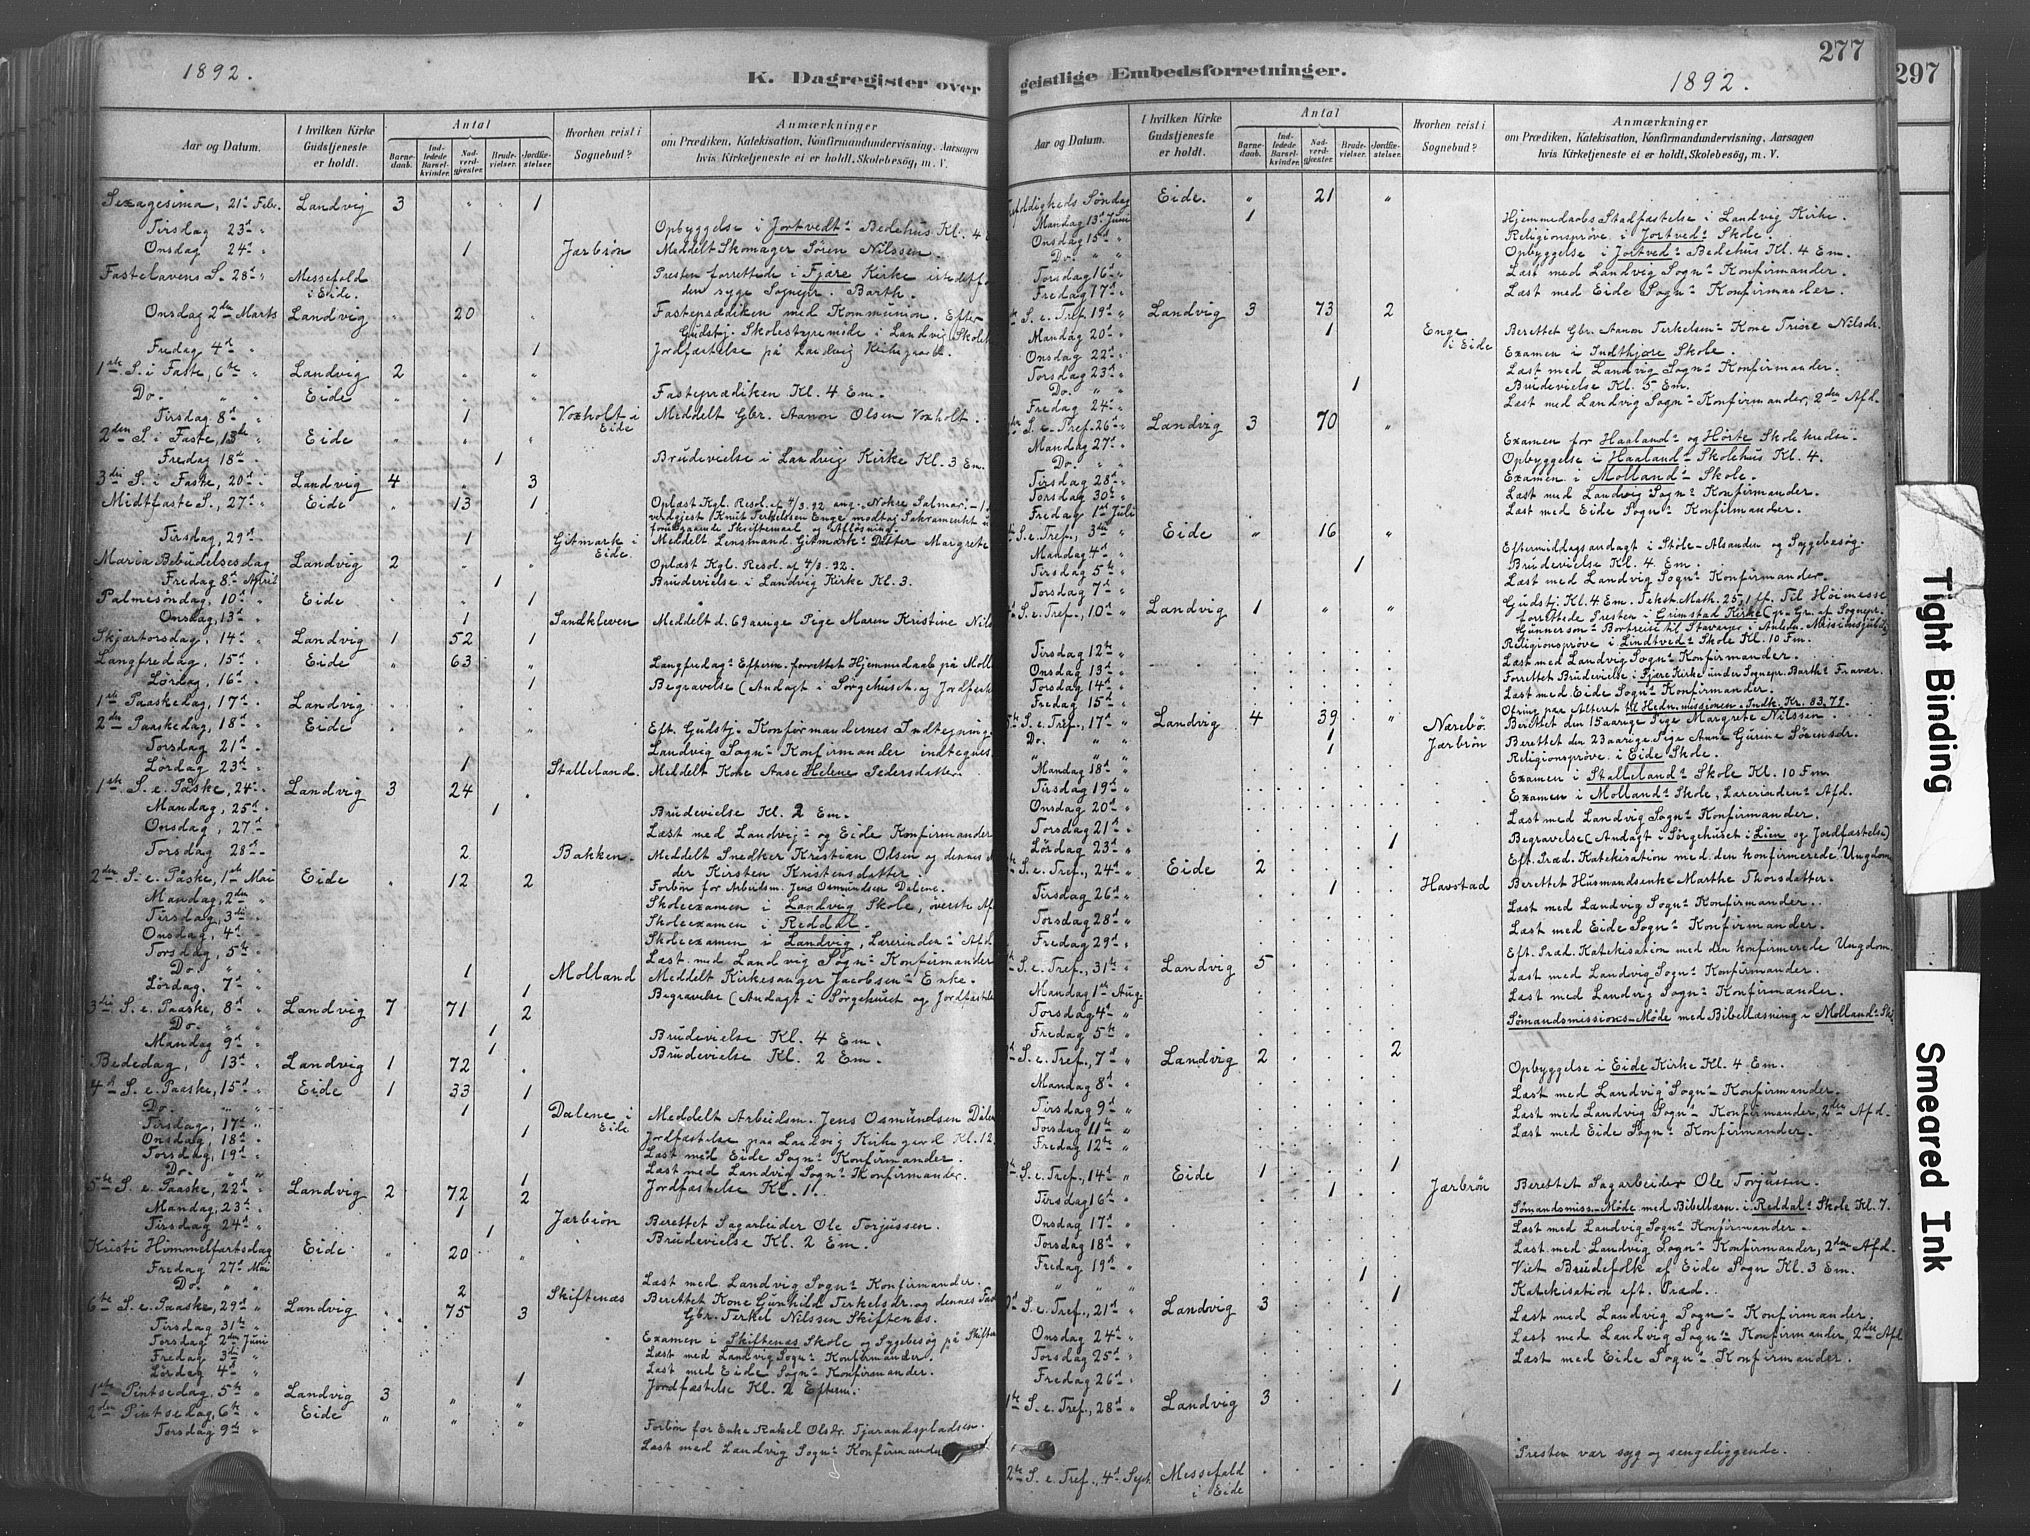 1892.
K. Dagregister over
Aar og Datum.
I hvilken Kirke Gudstjeneste er holdt.
Antal
Barnedaab.
Indledede Barselkvinder.
Nadverdgjæster.
Brudevielser.
Jordfæstelser.
Hvorhen reist i Sognebud?
Anmærkninger
om Prædiken, Katekisation, Konfirmandundervisning, Aarsagen
hvis Kirketjeneste ei er holdt, Skolebesøg, m. V.
Sexagesima, 21de Febr. Landvig 3 " " 1
Tirsdag 23d " Opbyggelse i Jortvedts Bedehus Kl. 4
Onsdag 24d " 1 Jærbrøn Meddelt Skomager Søren Nilssen.
Fastelavens S. 28d " Messefald i Eide. Presten forrettede i Fjære Kirke
den syge Sognepr. Barth.
Onsdag 2den Marts Landvig " 20 " Fasteprædiken med Kommunion. Efter
Gudstj. Skolestyremøde i Landvig
Fredag 4d " 1 Jordfæstelse på Landvig Kirkegaard.
1ste S. i Faste, 6te " Landvig 2 " "
Do. " " Eide " " " Fasteprædiken Kl. 4 Em.
Tirsdag 8d " 1 Voxholt i Eide Meddelt Gbr. Aanon Olsen Voxholt.
2den S. i Faste, 13de " Eide " " "
Fredag 18d " 1 Brudevielse i Landvig Kirke Kl. 3 Em.
3die S. i Faste, 20d " Landvig 4 " 3
Midtfaste S., 27d " Eide " 13 1 Oplæst Kgl. Resol. af 4/3.92 ang. Nokre Salmar.
Knut Terkelssen Enge modtog Sakramentet
foregaaende Skriftemaal og Afløsning.
Tirsdag, 29d " 1 Gitmark i Eide. Meddelt Lensmand Gitmarks Datter Margrete
Maria Bebudelsesdag Landvig 2 " " Oplæst Kgl. Resol. af 4/3.92.
Fredag 8d April 1 Brudevielse i Landvig Kirke Kl. 3.
Palmesøndag, 10d " Eide " " 1
Onsdag, 13d " 1 Sandkleven Meddelt d. 69 aarige Pige Maren Kristine
Skjærtorsdag, 14d " Landvig 1 52 1
Langfredag, 15d " Eide " 63 " Langfredags Efterm. forrettet Hjemmedaab på
Lørdag, 16d " 1 Begravelse (Andagt i Sørgehuset og
1ste Paaskedag, 17d " Landvig . . .
2den Paaskedag, 18d " Eide " " " Eft. Gudstj. Konfirmandernes Indtegning.
Torsdag 21d " Landvig Sogns Konfirmander indtegnes.
Lørdag 23d " 1 Stalleland. Meddelt Kone Aase Helene Pedersdatter.
1ste S. e. Påske, 24d " Landvig 3 24 .
Mandag, 25d " 1 Brudevielse Kl. 2 Em.
Onsdag, 27d " Læst med Landvigs og Eide Konfirmander
Torsdag 28d " 2 Bakken. Meddelt Snedker Kristian Olsen og dennes
der Kirsten Kristensdatter.
2den S. e. Påske, 1ste Mai Eide . 12 2 Forbøn for Arbeidsm. Jens Osmundsen Dalene.
Mandag, 2den " Skoleexamen i Landvig Skole, øverste
Tirsdag, 3die " Skoleexamen i Reddal.
Onsdag, 4d " Skoleexamen i Landvig, Lærerindens Afd.
Torsdag, 5te " Læst med Landvig Sogns Konfirmander
Do. " " 1 Molland Meddelt Kirkesanger Jacobsens Enke.
Lørdag, 7d " 1 Begravelse (Andagt i Sørgehuset og
3die S. e. Paaske, 8d " Landvig 7 71 2
Do. " " 1 Brudevielse Kl. 4 Em.
Mandag 9d " 1 Brudevielse Kl. 2 Em.
Bededag, 13d " Landvig 1 72 .
4d S. e. Paaske, 15d " Eide 1 33 1
Do. " " 1 Dalene i Eide Meddelt Arbeidsm. Jens Osmundsen
Tirsdag, 17d " 1 Jordfæstelse paa Landvig Kirkegaard Kl. 12.
Onsdag, 18d " Læst med Eide Sogns Konfirmander.
Torsdag, 19d " Læst med Landvig Sogns Konfirmander.
Do. " " 1 Jordfæstelse Kl. 11.
5te S. e. Paaske, 22d " Landvig 2 72 2
Mandag, 23d " 1 Jærbrøn Berettet Sagarbeider Ole Torjussen.
Tirsdag 24d " 1 Brudevielse Kl. 2 Em.
Kristi Himmelfartsdag Eide " 20 "
Fredag 27d Mai Læst med Landvig Sogns Konfirmander.
Do. " " 2 Skiftenæs Berettet Kone Gunhild Terkelsdr. og dennes
Gbr. Terkel Nilssen Skiftenæs.
6te S. e. Paaske, 29d " Landvig . 75 3
Tirsdag 31te " Examen i Skiftenæs Skole og Sygebesøg på
Torsdag 2den Juni Læst med Landvig Sogns Konfirmander.
Fredag 3die " Læst med Eide Sogns Konfirmander.
Lørdag 4d " 1 Jordfæstelse Kl. 2 Efterm.
1ste Pintsedag, 5te " Landvig 3 " "
2den Pintsedag, 6te " Eide " " " Forbøn for Enke Rakel Olsdr. Tjærandspladsen.
Torsdag 9de " Læst med Landvig Sogns
geistlige Embedsforretninger.
1892.
277
297
Aar og Datum.
I hvilken Kirke Gudstjeneste er holdt.
Antal
Barnedaab.
Indledede Barselkvinder.
Nadverdgjæster.
Brudevielser.
Jordfæstelser.
Hvorhen reist i Sognebud?
Anmærkninger
om Prædiken, Katekisation, Konfirmandundervisning, Aarsagen
hvis Kirketjeneste ei er holdt, Skolebesøg, m. V.
Søndag Eide. " 21 "
Mandag 13d Juni 1 Hjemmedaabs Stadfæstelse i Landvig Kirke.
Onsdag 15d " Religionsprøve i Jortveds Skole.
Do. " " Opbyggelse i Jortveds Bedehus Kl. 4 Em.
Torsdag 16d " Læst med Landvig Sogns Konfirmander.
Fredag 17d " Læst med Eide Sogns Konfirmander.
S. e. Tref. 19d " Landvig 3 73 2
Mandag 20d " 1 Enge i Eide Berettet Gbr. Aanon Terkelsens Kone
Onsdag 22d " Examen i Indthjøre Skole.
Torsdag 23d " Læst med Landvig Sogns Konfirmander.
Do. " " 1 Brudevielse Kl. 5 Em.
Fredag 24d " Læst med Landvig Sogns Konfirmander, 2den Afd.
S. e. Tref. 26d " Landvig 3 70 "
Mandag 27d " Examen for Haalands og Hørte Skolekreds.
Do. " " Opbyggelse i Haalands Skolehus Kl. 4.
Tirsdag 28d " Examen i Mollands Skole.
Torsdag 30d " Læst med Landvig Sogns Konfirmander.
Fredag 1st Juli Læst med Eide Sogns Konfirmander.
S. e. Tref., 3die " Eide " 16 "
Mandag 4d " Eftermiddagsandagt i og Sygebesøg.
Tirsdag 5te " 1 Brudevielse Kl. 4 Em.
Torsdag 7d " Læst med Landvig Sogns Konfirmander.
S. e. Tref., 10d " Landvig 1 " " Gudstj. Kl. 4 Em. Tekst. Math. 25,1 ff. Til Høimesse
forrettede Presten i Grimstad Kirke (gr. Gr. af Sognepr.
Gunnersons Bortreise til Stavanger i
Tirsdag 12te " Religionsprøve i Lindtveds Skole Kl. 10 Fm.
Onsdag 13d " Læst med Landvig Sogns Konfirmander.
Torsdag 14d " Forrettet Brudevielse i Fjære Kirke under Sognepr. Barths Fravær.
Fredag 15d " Læst med Eide Sogns Konfirmander.
S. e. Tref., 17d " Landvig 4 39 " Ofring paa Alteret til Hedn. missionen. Indk. Kr. 83,79.
Do. " " 1 Nærebø Berettet den 15 aarige Pige Margrete Nilssen.
" " " 1 Jærbrøn Berettet den 23 aarige Pige Anne Gurine Sørensdr.
Mandag 18d " Religionsprøve i Eide Skole.
Tirsdag 19d " Examen i Stallelands Skole Kl. 10 Fm.
Onsdag 20d " Examen i Mollands Skole, Lærerindens Afd.
Torsdag 21d " Læst med Landvig Sogns Konfirmander.
Lørdag 23d " 1 Begravelse (Andagt i Sørgehuset i Lien og Jordfæstelse)
S. e. Tref., 24d " Eide 2 Eft. Præd. Katekisation med den konfirmerede Ungdom
Tirsdag 26d " 1 Havstad Berettet Husmandsenke Marthe Thorsdatter.
Torsdag 28d " Læst med Landvig Sogns Konfirmander.
Fredag 29d " Læst med Eide Sogns Konfirmander.
S. e. Tref., 31te " Landvig 5 Eft. Præd. Katekisation med den konfirmerede Ungdom.
Mandag 1ste Aug. Læst med Landvig Sogns Konfirmander.
Torsdag 4d " Læst med Landvig Sogns Konfirmander.
Fredag 5te " Sømandsmissions-Møde med Bibellæsning i Mollands
S. e. Tref., 7d " Landvig 2 2 Opbyggelse i Eide Kirke Kl. 4 Em.
Mandag 8d " Læst med Landvig Sogns Konfirmander.
Tirsdag 9d " Læst med Landvig Sogns Konfirmander, 2den Afd.
Torsdag 11te " Læst med Eide Sogns Konfirmander.
Fredag 12te "
S. e. Tref., 14d " Eide 1 1
Tirsdag 16d " 1 Jærbrøn Berettet Sagarbeider Ole Torjussen.
Onsdag 17d " Sømandsmiss.-Møde med Bibellæsn. i Reddals Skole Kl. 7.
Torsdag 18d " Læst med Landvig Sogns Konfirmander.
Fredag 19d " Læst med Landvig Sogns Konfirmander, 2den Afd.
" " 1 Viet Brudefolk af Eide Sogn Kl. 3 Em.
S. e. Tref., 21d " Landvig 3 1 Katekisation eft. Præd.
Onsdag 24d " Læst med Landvig Sogns Konfirmander.
Torsdag 25d " Læst med Landvig Sogns Konfirmander, 2den Afd.
Fredag 26d " Læst med Eide Sogns Konfirmander.
S. e. Tref., 28d " Landvig 3 1
S. e. Tref., 4d Sept. Messefald i Eide Presten var syg og sengeliggende.
Tight Binding
Smeared Ink